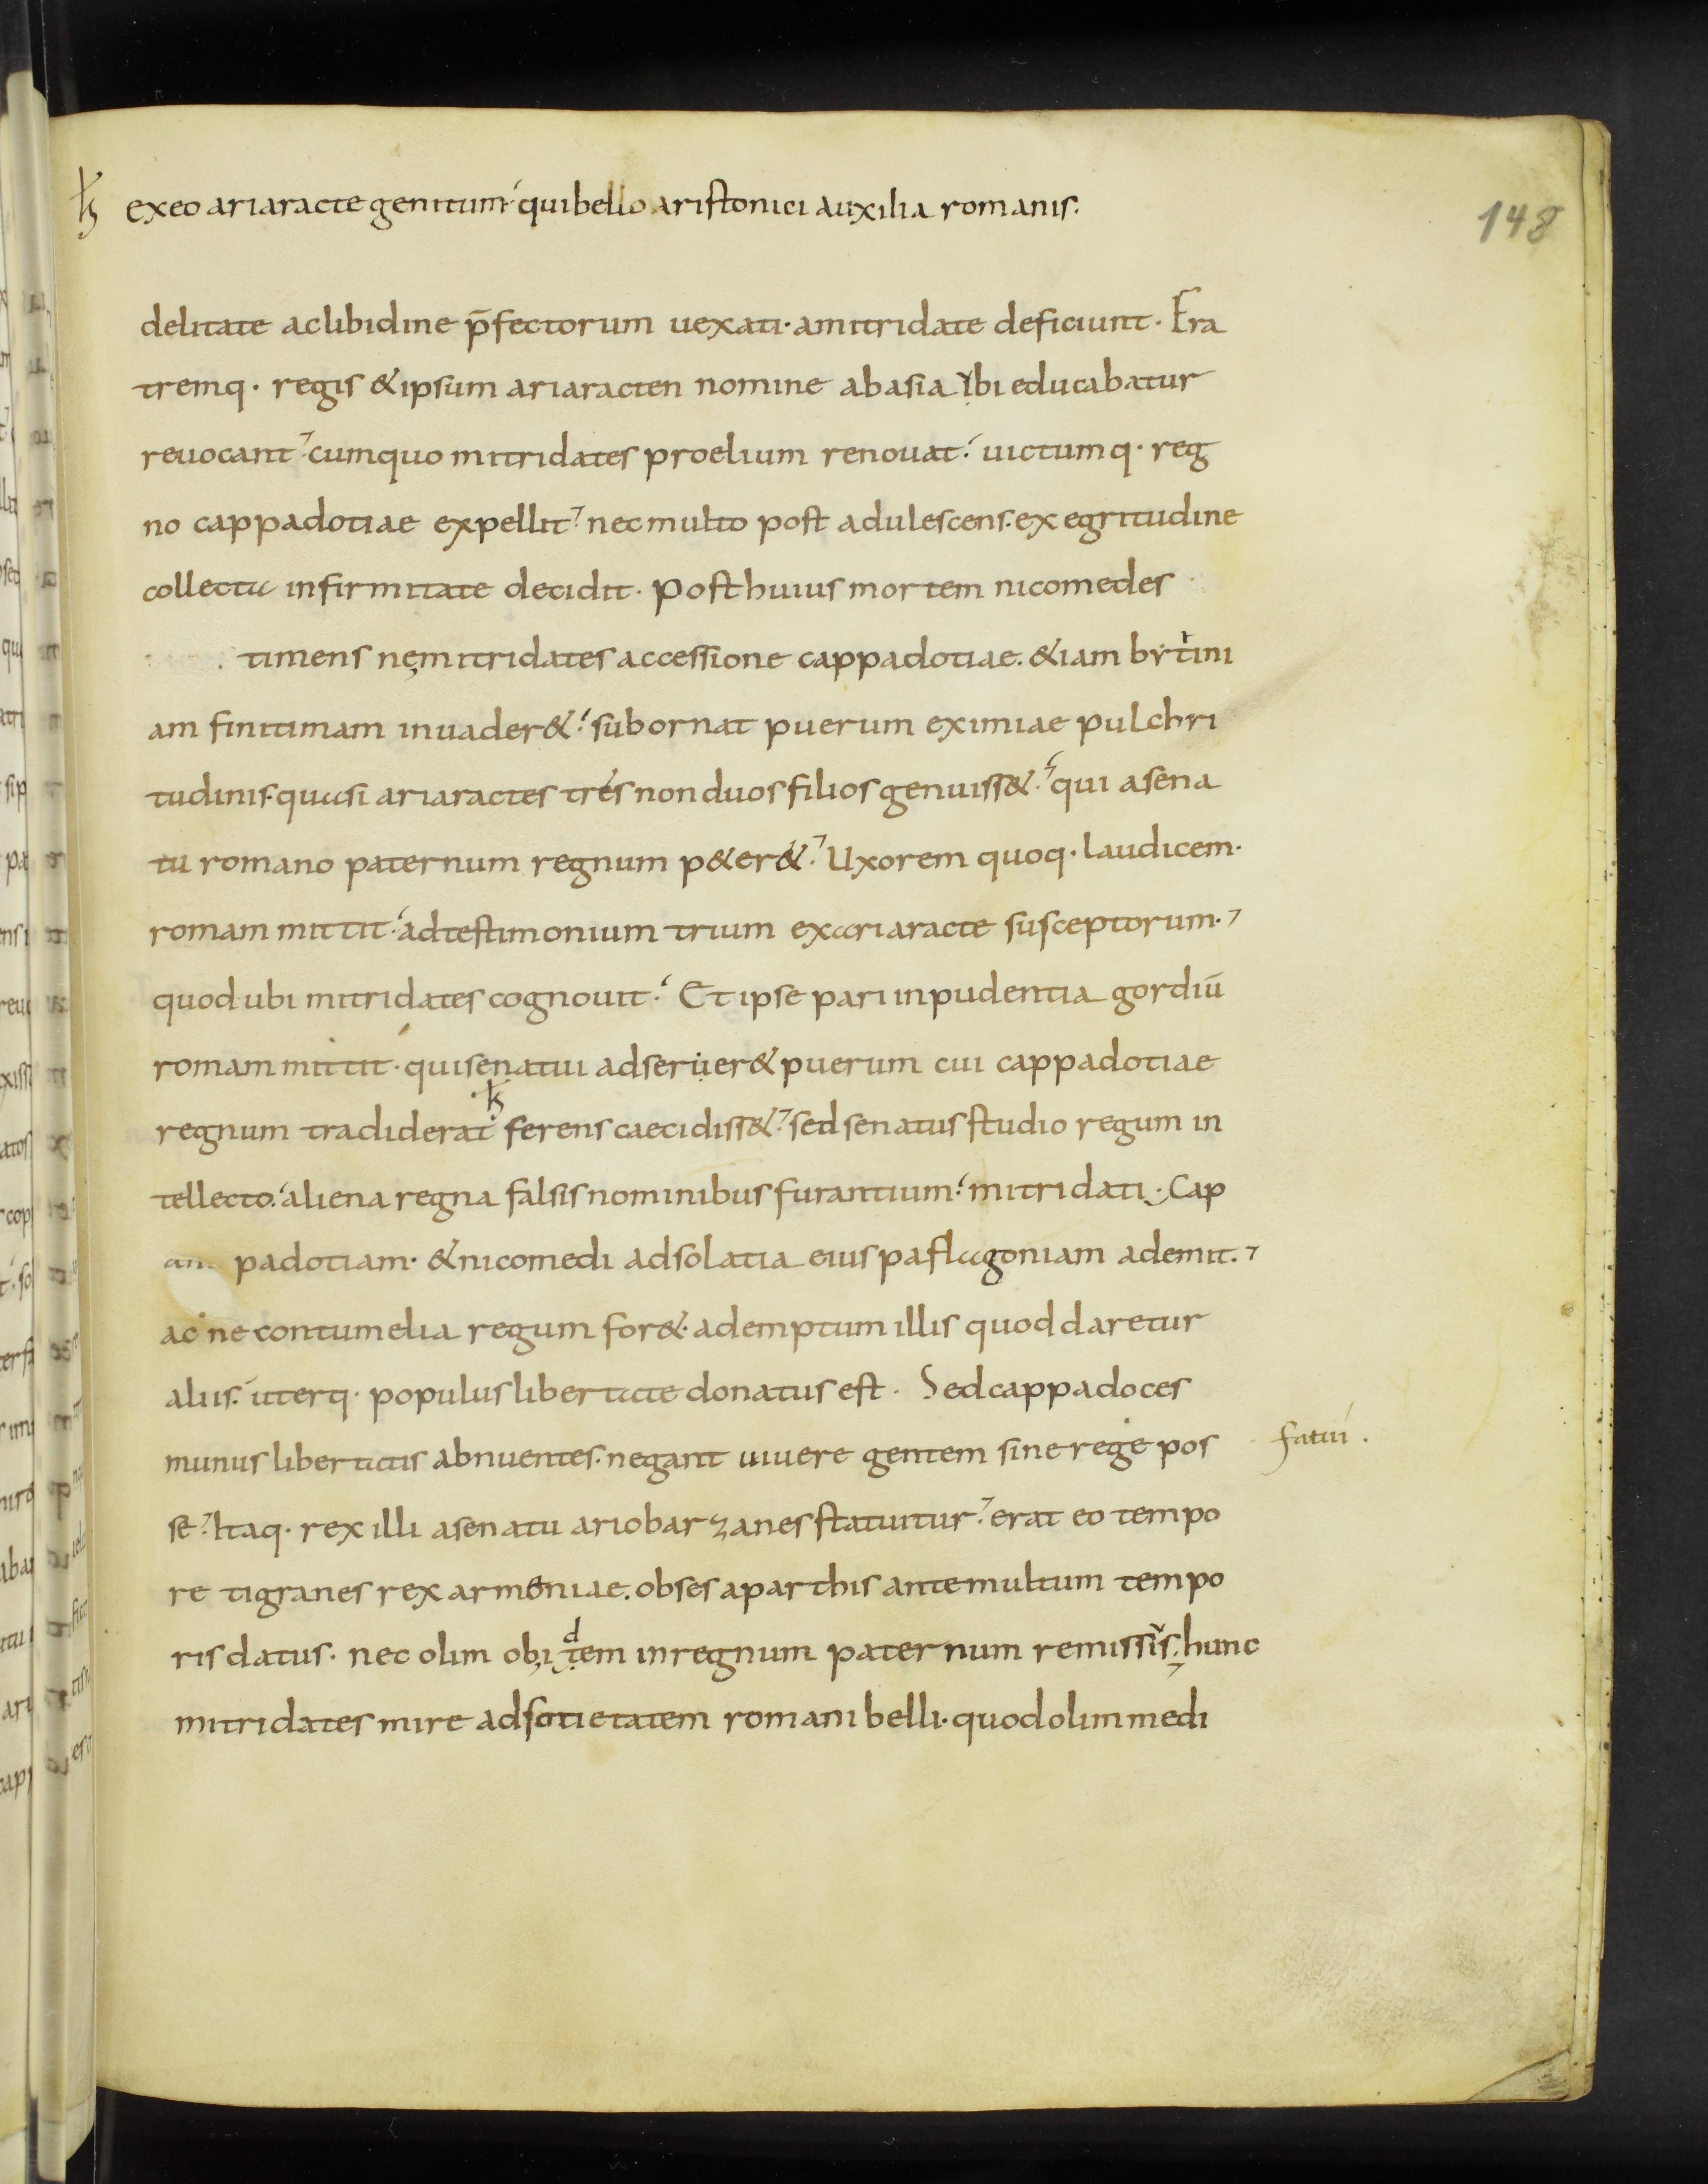 ꝁ exeo ariaracte genitum quibello aristonici auxilia romanis.
148
delitate aclibidine p̄fectorum uexati · amitridate deficiunt · Fra
tremq · regis & ipsum ariaracten nomine abasia ybi educabatur
reuocant cumquo mitridates proelium renouat uictumq · reg
no cappadotiae expellit nec multo post adulescens. ex egritudine
collecta infirmitate decidit · Post huius mortem nicomedes
timens ne mitridates accessione cappadotiae. &iam bytini
am finitimam inuader& subornat puerum eximiae pulchri
tudinis. quasi ariaractes trés non duos filios genuiss& qui asena
tu romano paternum regnum p&er& Uxorem quoq · laudicem ·
romam mittit adtestimonium trium exariaracte susceptorum ·
quod ubi mitridates cognouit Et ipse pari inpudentia gordiū
romam mittit · quisenatui adseruer& puerum cui cappadotiae
regnum tradiderat ꝁ ferens caecidiss& sed senatus studio regum in
tellecto aliena regna falsis nominibus furantium mitridati. Cap
am padotiam · & nicomedi adsolatia eius paflagoniam ademit ·
ac ne contumelia regum for& · ademptum illis quod daretur
aliis. uterq · populus libertate donatus est · Sed cappadoces
munus libertatis abnuentes. negant uiuere gentem sine rege pos
fatui .
se Itaq · rex illi asenatu ariobarzanes statuitur erat eo tempo
re tigranes rex armeniae. obses aparthis ante multum tempo
ris datus · nec olim obitem d inregnum paternum remissis. hunc
mitridates mire adsotietatem romani belli · quod olim medi